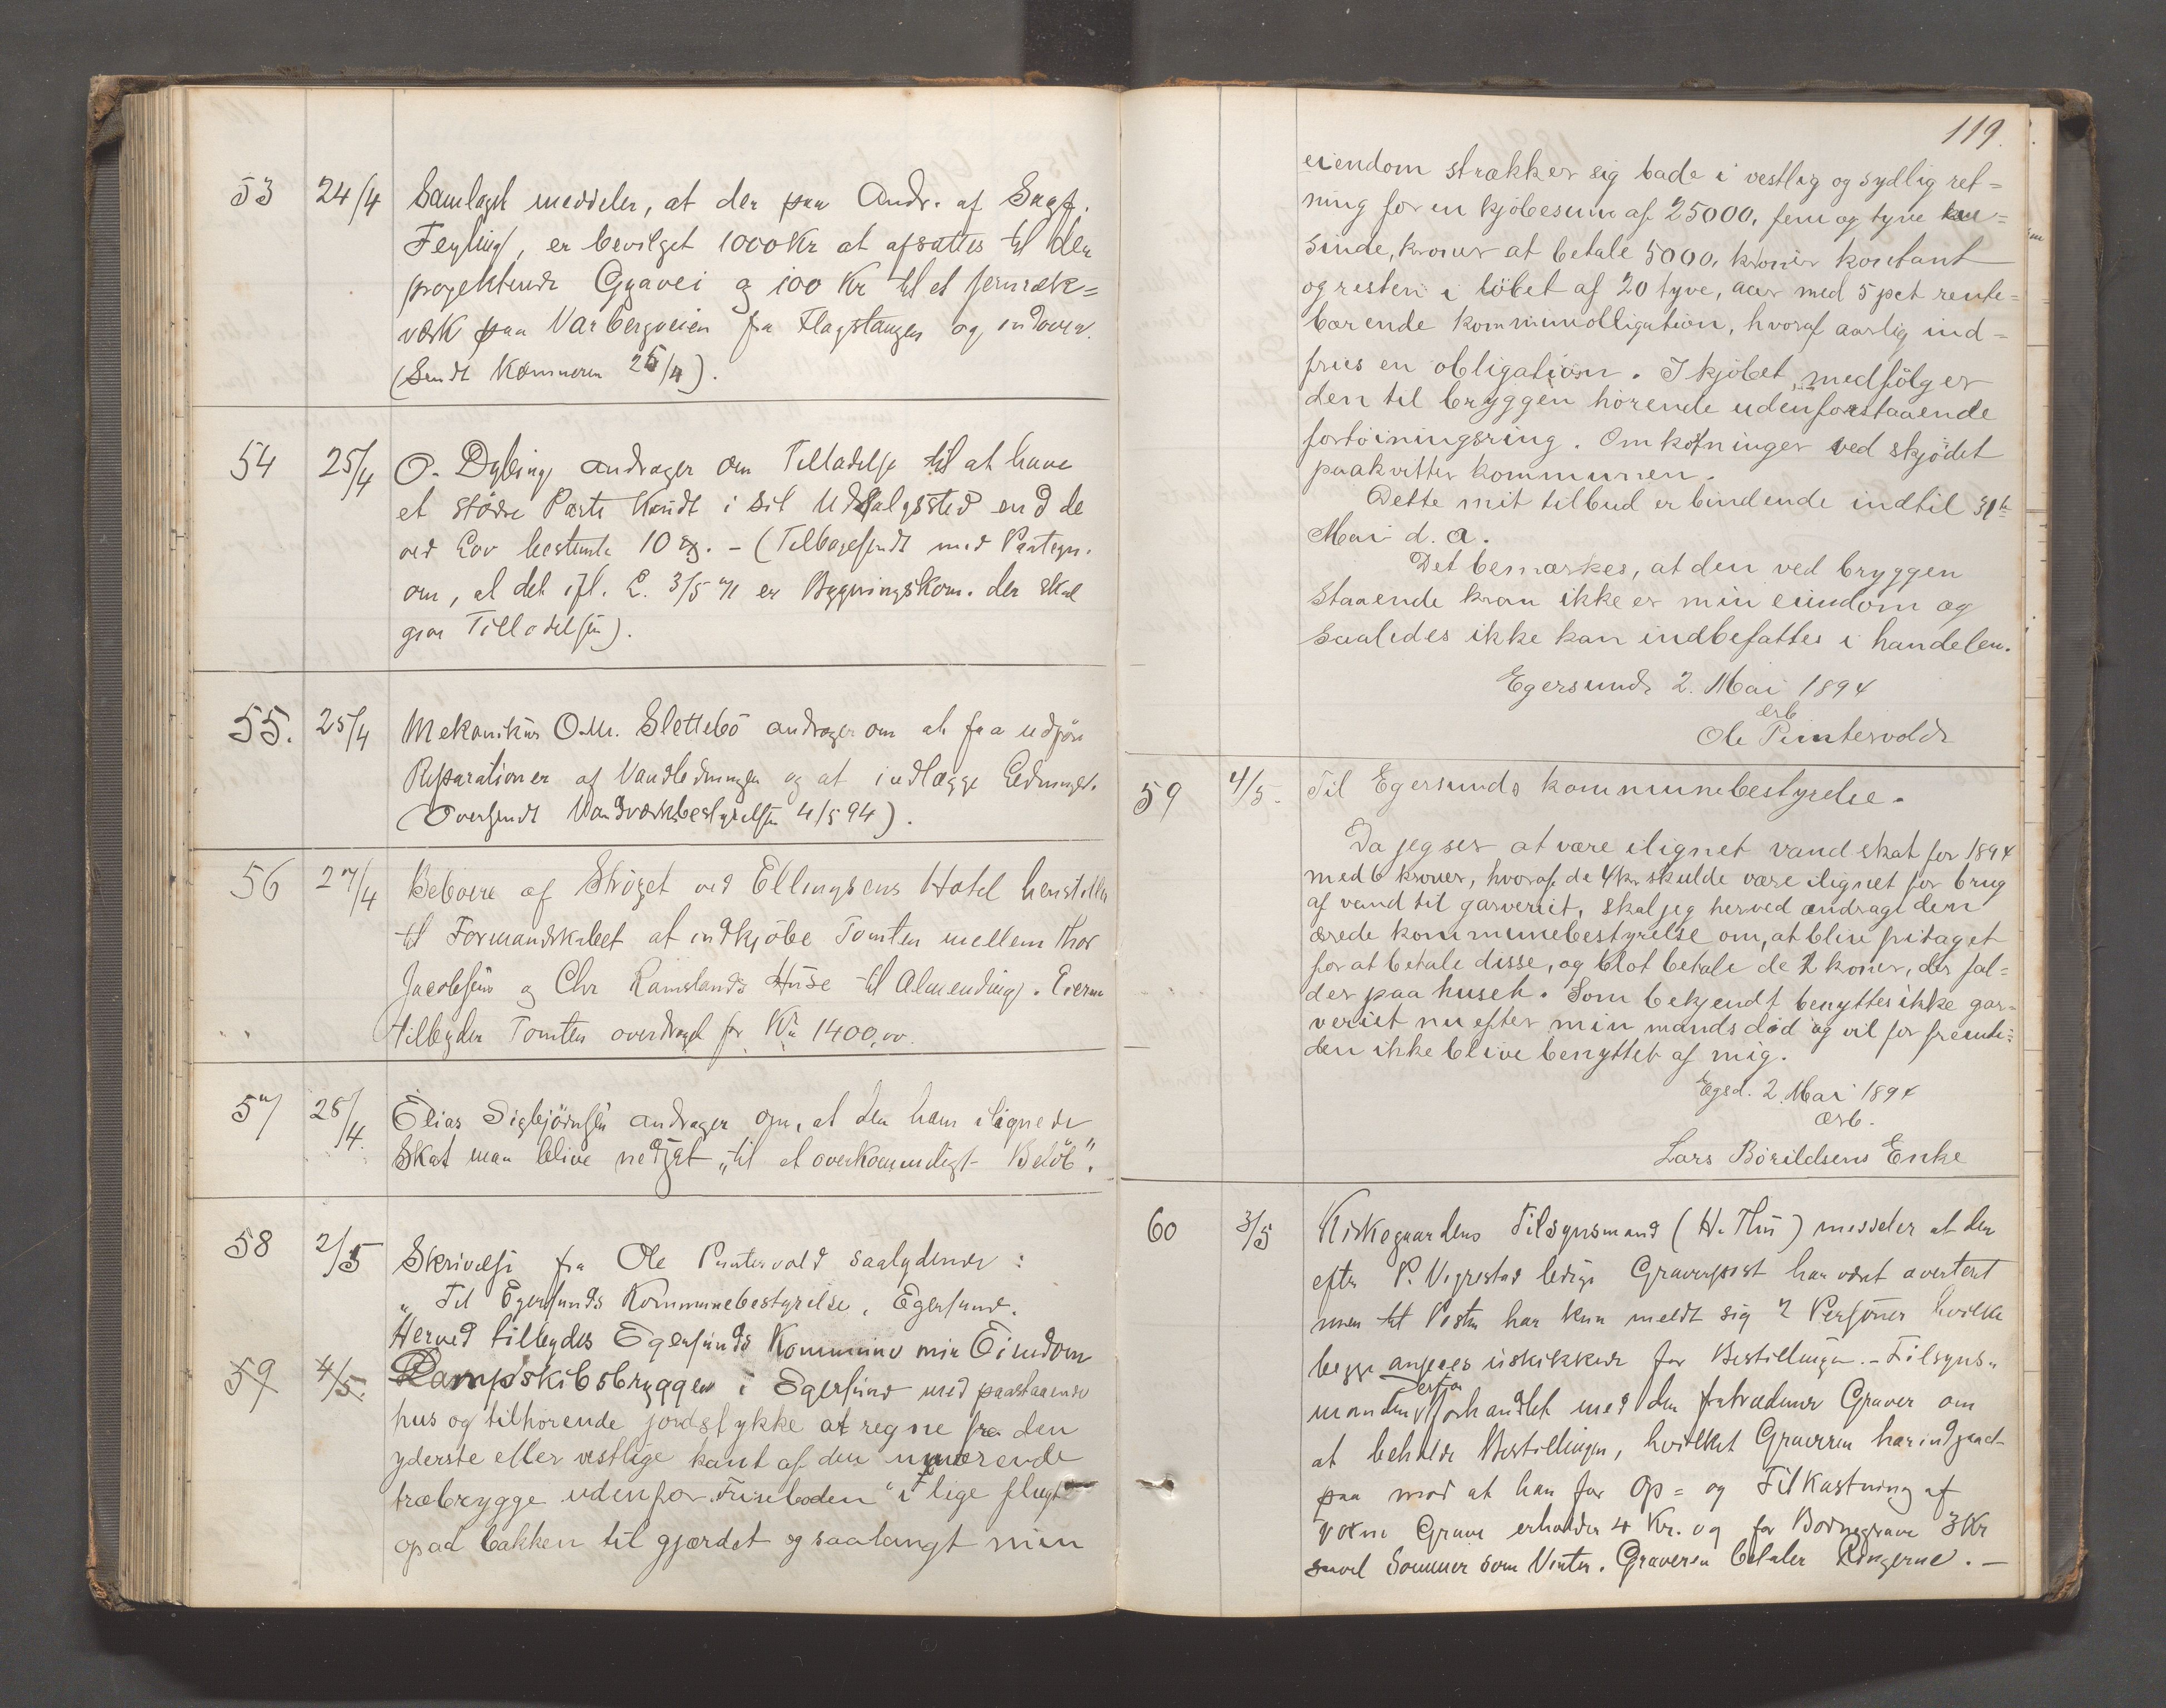 53 24/4 Samlaget meddeler, at der paa Andr. af Sagf.
Feyling, er bevilget 1000 Kr at afsættes til den
projekterede Gyavei og 100 Kr til et jernræk=
værk paa Varbergveien fra Flagstangen og indover.
(Sendt Kæmneren 25/4).
54 25/4 O. Dybing andrager om Tilladelse til at have
et större Parti Krudt i sit Udsalgssted end de
ved Lov bestemte 10 kg. – (Tilbagesendt med Paategn.
om, at det ifl. L. 3/5 71 er Bygningskom. der skal
give Tilladelsen).
55. 25/4 Mekanikus O. M. Slettebö andrager om at faa udföre
Reparationer af Vandledningen og at indlægge Ledninger.
(Oversendt Vandværksbestyrelsen 4/5 94).
56 27/4 Beboere af Ströget ved Ellingsens Hotel henstiller
til Formandskabet at indkjöbe Tomten mellem Thor
Jacobsens og Chr Ramslands Huse til Almending. Eieren
tilbyder Tomten overdraget for Kr 1400,00.
57 28/4. Elias Sigbjörnsen andrager om, at den ham ilignede
Skat maa blive nedsat „til et overkommeligt Belöb".
58 2/5 Skrivelse fra Ole Puntervold saalydende:
„Til Egersunds Kommunebestyrelse, Egersund.
Herved tilbydes Egersunds Kommune min Eiendom
59 4/5. Dampskibsbryggen i Egersund med paastaaende
hus og tilhörende jordstykke at regne fra den
yderste eller vestlige kant af den nuværende
træbrygge udenfor „Friseboden" i lige flugt
opad bakken til gjærdet og saalangt min
119.
eiendom strækker sig bade i vestlig og sydlig ret=
ning for en kjöbesum af 25000, fem og tyve tu=
sinde, kroner at betale 5000, kroner kontant
og resten i löbet af 20 tyve, aar med 5 pct rente=
bærende kommunolligation, hvoraf aarlig ind=
fries en obligation. I kjöbet, medfölger
den til bryggen hörende udenforstaaende
fortöiningsring. Omkostninger ved skjödet
paakvitter kommunen.
Dette mit tilbud er bindende indtil 31te
Mai d. a.
Det bemærkes, at den ved bryggen
staaende kran ikke er min eiendom og
saaledes ikke kan indbefattes i handelen.
Egersund 2. Mai 1894
erb
Ole Puntervold
59 4/5. Til Egersunds kommunebestyrelse.
Da jeg ser at være ilignet vandskat for 1894
med 6 kroner, hvoraf de 4 kr. skulde være ilignet for brug
af vand til garveriet, skal jeg herved andrage den
ærede kommunebestyrelse om, at blive fritaget
for at betale disse, og blot betale de 2 kroner, der fal=
der paa huset. Som bekjendt benyttes ikke gar=
veriet nu efter min mands död og vil for fremti=
den ikke blive benyttet af mig.
Egsd. 2. Mai 1894
ærb.
Lars Börildsens Enke
60 3/5 Kirkegaardens Tilsynsmand (H. Thu) meddeler at den
efter P. Vigrestad ledige Graverpost har været averteret
men til Posten har kun meldt sig 2 Personer hvilke
begge ansees uskikkede for Bestillingen. – Tilsyns=
manden derfor forhandlet med den fratrædende Graver om
at beholde Bestillingen, hvilket Graveren har indgaaet
paa mod at han for Op= og Tilkastning af
voxne Grave erholder 4 Kr. og for Börnegrave 3 Kr
saavel Sommer som Vinter. Graveren betaler Ringerne. –